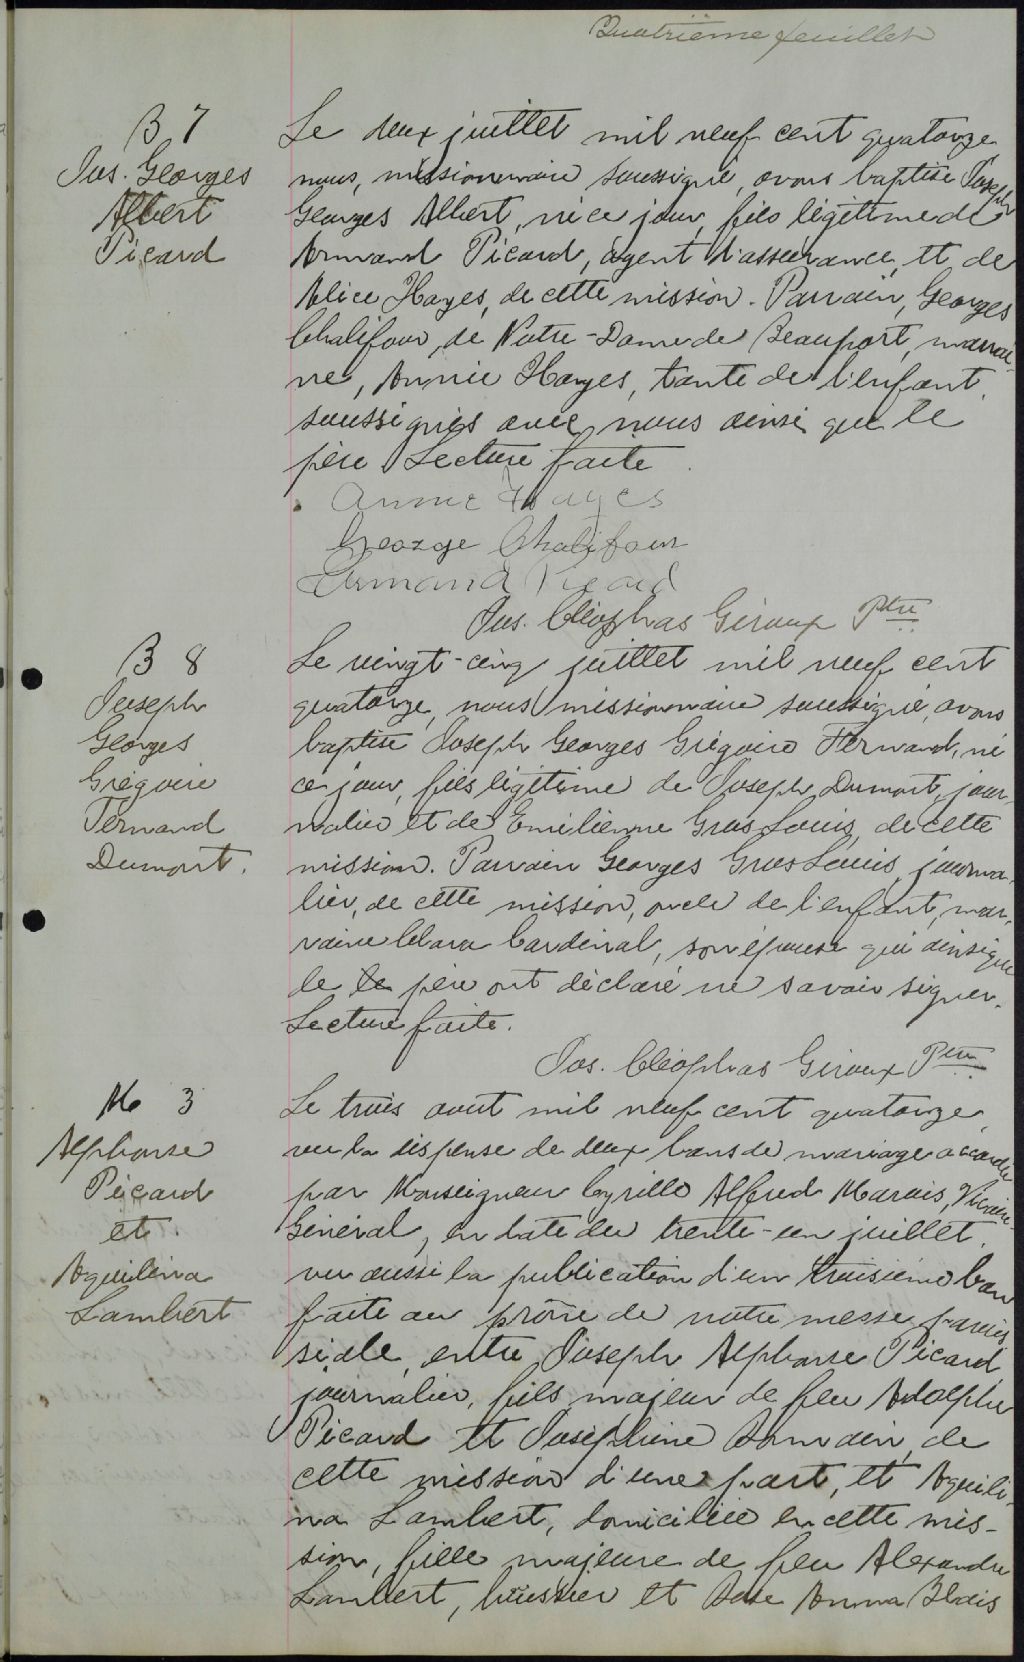 Quatrième feuillet
B 7
Jos. Georges
Albert
Picard
Le deux juillet mil neuf cent quatorze
nous, missionnaire soussigné, avons baptisé Joseph
Georges Albert, né ce jour, fils légitime de
Armand Picard, agent d'assurance, et de
Alice Hayes, de cette mission. Parrain, Georges
Chalifour, de Notre-Dame de Beauport, marrai-
ne, Annie Hayes, tante de l'enfant,
soussignés avec nous ainsi que le
père Lecture faite.
Annie Hayes
George Chalifour
Armand Picard
Jos. Cléophas Giroux Ptre
B 8
Joseph
Georges
Grégoire
Fernand
Dumont.
Le vingt-cinq juillet mil neuf cent
quatorze, nous missionnaire soussigné, avons
baptisé Joseph Georges Grégoire Fernand, né
ce jour, fils légitime de Joseph Dumont, jour-
nalier et de Emilienne Gros Louis, de cette
mission. Parrain Georges Gros Louis, journa-
lier, de cette mission, oncle de l'enfant, mar-
raine Clara Cardinal, son épouse qui ainsi que
le père ont déclaré ne savoir signer.
Lecture faite.
Jos. Cléophas Giroux Ptre
M 3
Alphonse
Picard
et
Aquilina
Lambert
Le trois août mil neuf cent quatorze,
vu la dispense de deux bans de mariage accordée
par Monseigneur Cyrille Alfred Marois, Vicaire-
Général, en date du trente-un juillet,
vu aussi la publication d'un troisième ban
faite au prône de notre messe parois-
siale, entre Joseph Alphonse Picard
journalier, fils majeur de feu Adolphe
Picard et Joséphine Romain, de
cette mission d'une part, et Aquili-
na Lambert, domiciliée en cette mis-
sion, fille majeure de feu Alexandre
Lambert, huissier et Rose Anna Blais